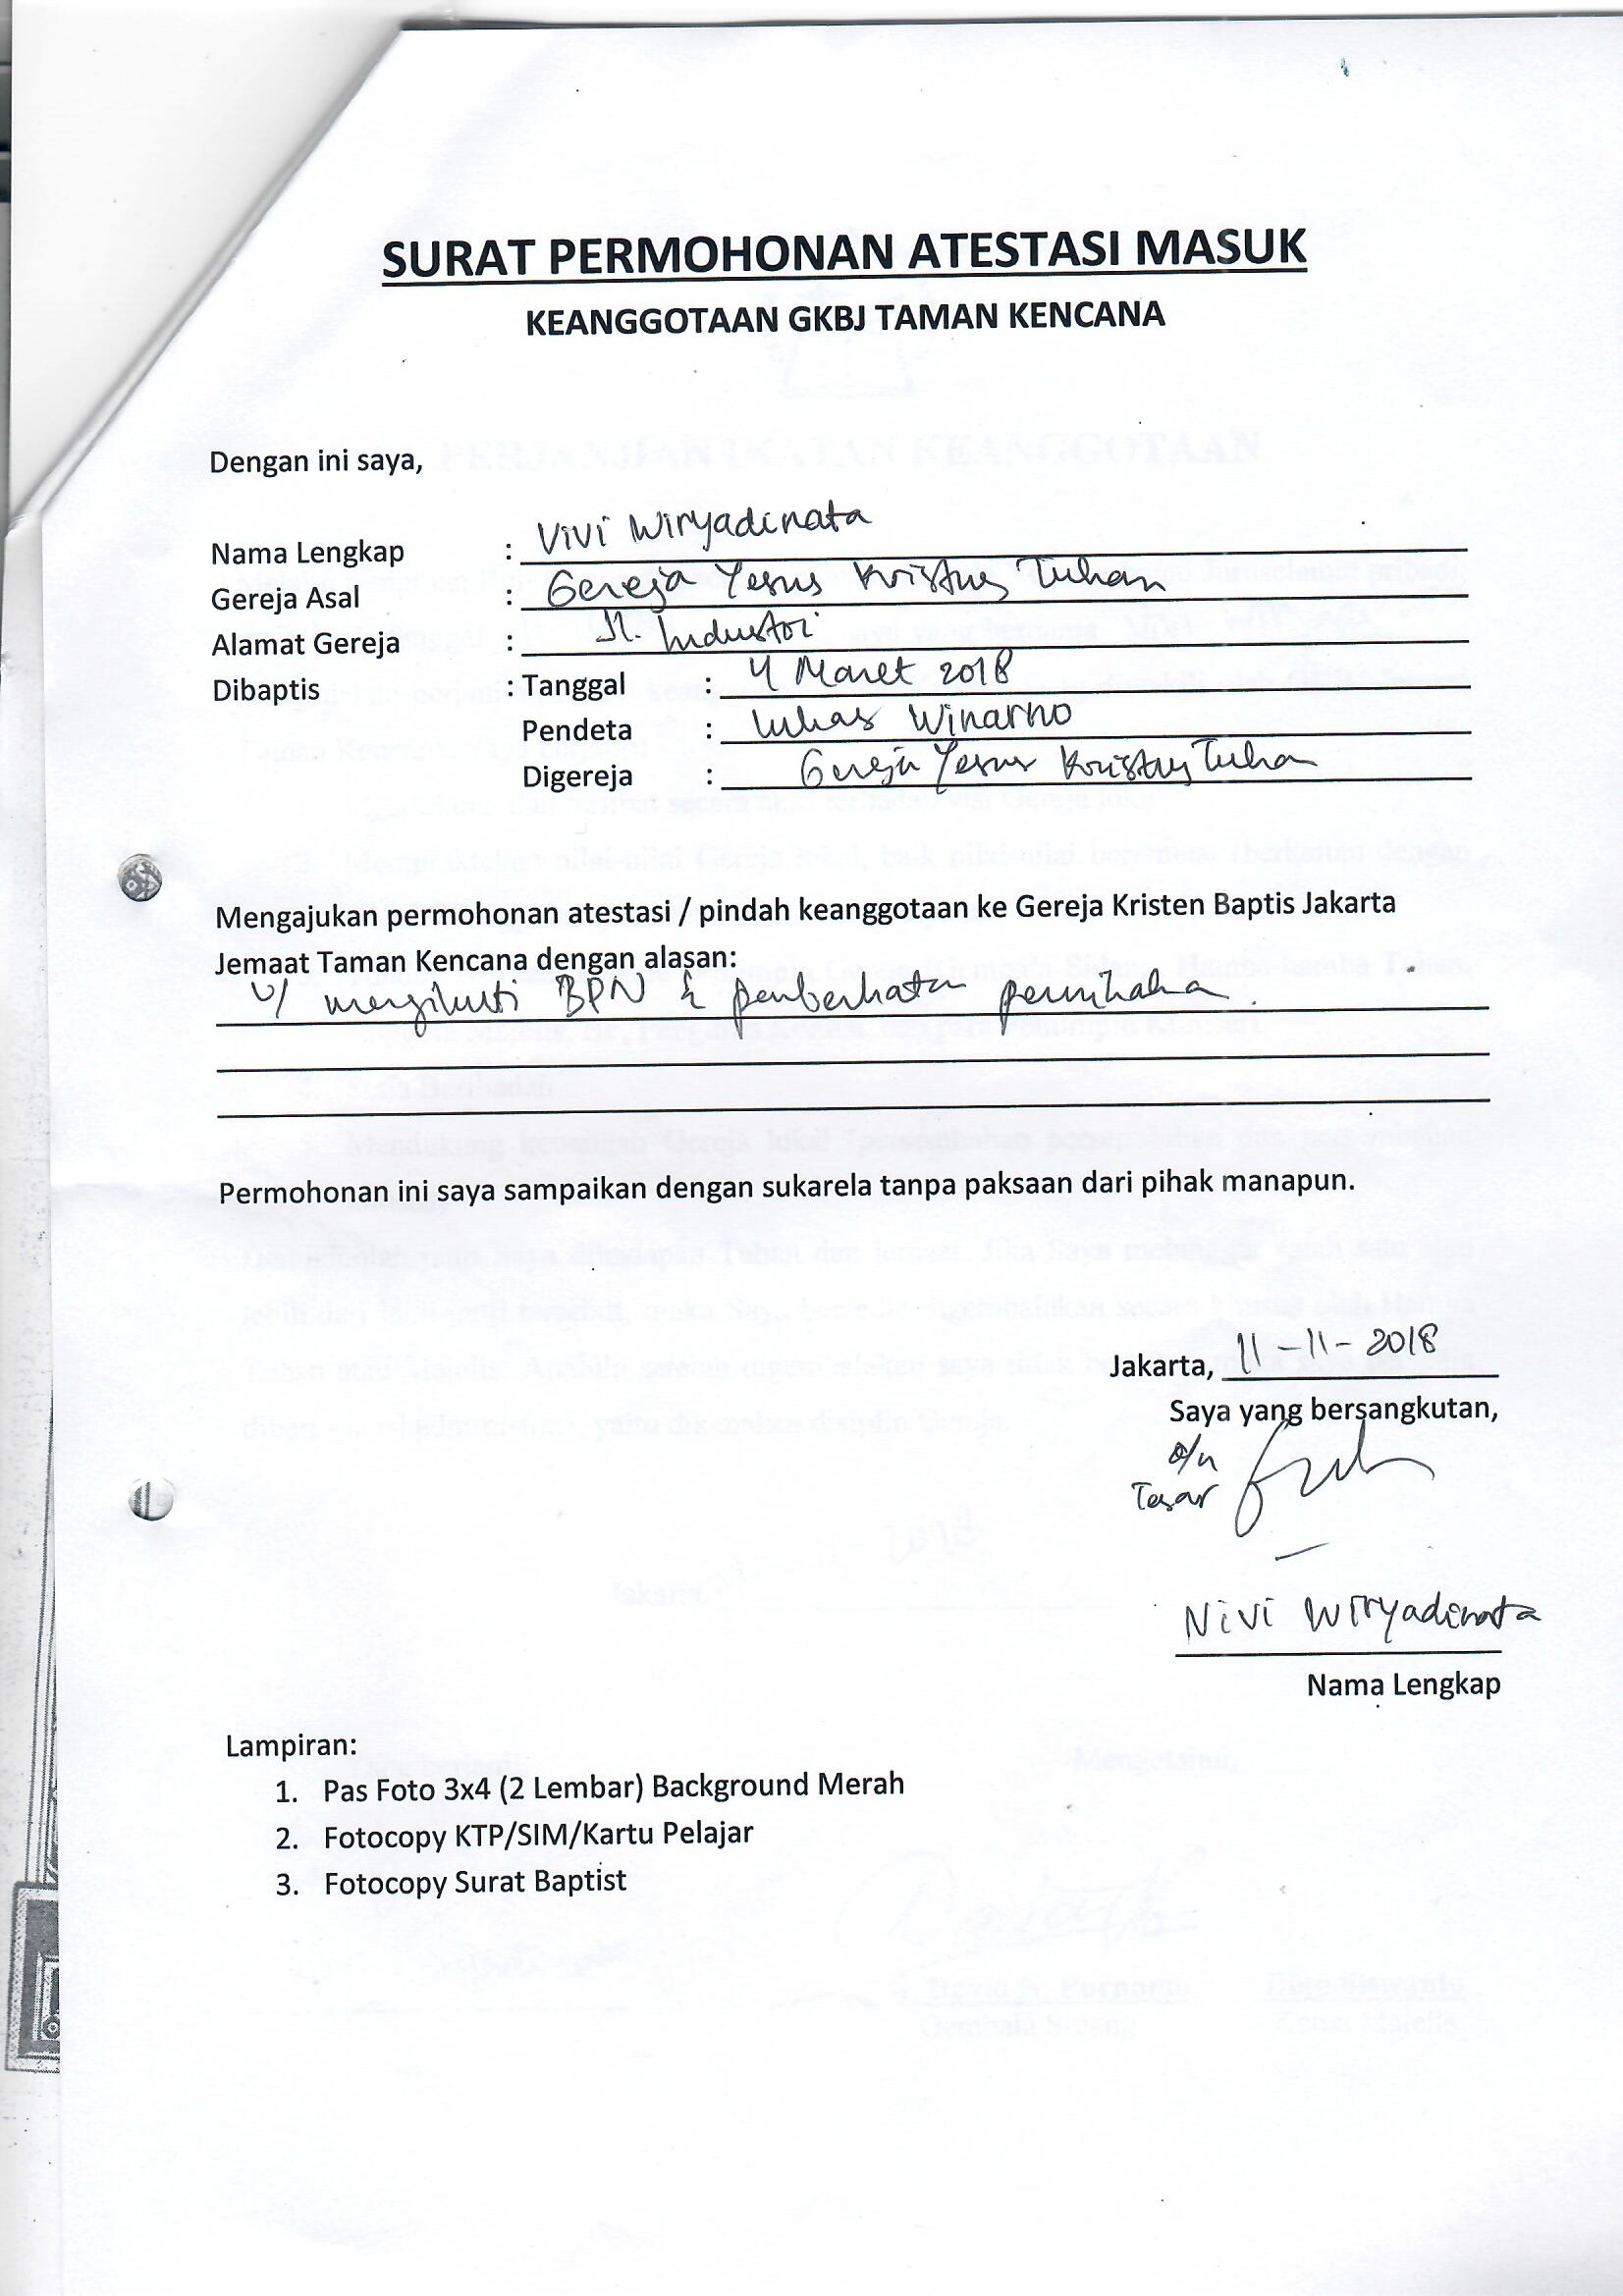 SURAT PERMOHONAN ATESTASI MASUK
KEANGGOTAAN GKBJ TAMAN KENCANA
Dengan ini saya,
Nama Lengkap : Vivi Wiryadinata
Gereja Asal : Gereja Yesus Kristus Tuhan
Alamat Gereja : Jl. Industri
Dibaptis : Tanggal : 4 Maret 2018
Pendeta : Lukas Winarno
Digereja : Gereja Yesus Kristus Tuhan
Mengajukan permohonan atestasi / pindah keanggotaan ke Gereja Kristen Baptis Jakarta
Jemaat Taman Kencana dengan alasan:
u/ mengikuti BPN & pemberkatan pernikahan.
Permohonan ini saya sampaikan dengan sukarela tanpa paksaan dari pihak manapun.
Jakarta, 11-11-2018
Saya yang bersangkutan,
a/n
Tesar
Vivi Wiryadinata
Nama Lengkap
Lampiran:
1. Pas Foto 3x4 (2 Lembar) Background Merah
2. Fotocopy KTP/SIM/Kartu Pelajar
3. Fotocopy Surat Baptist